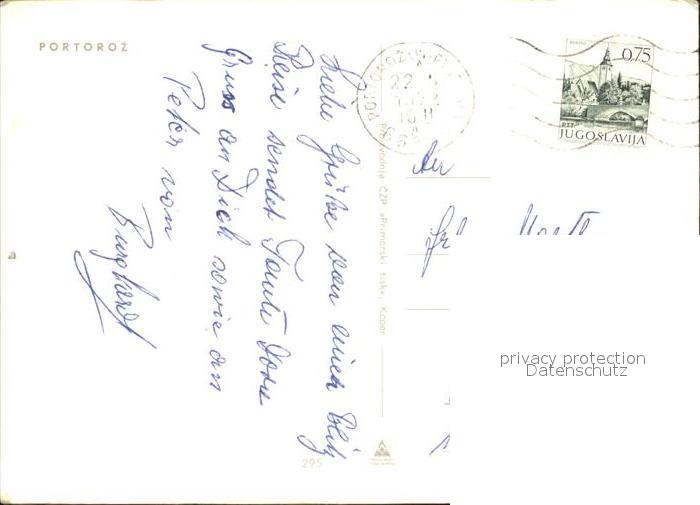 PORTOROŽ
Liebe Grüße von einer Blitz
Reise sendet Tante Dora
Gruss an Dich sowie an
Peter von
Burghard
PORTOROŽ
22
16 H
0,75
PTT
JUGOSLAVIJA
An
Proizvodnja ČZP »Primorski tisk«, Koper
295
privacy protection
Datenschutz